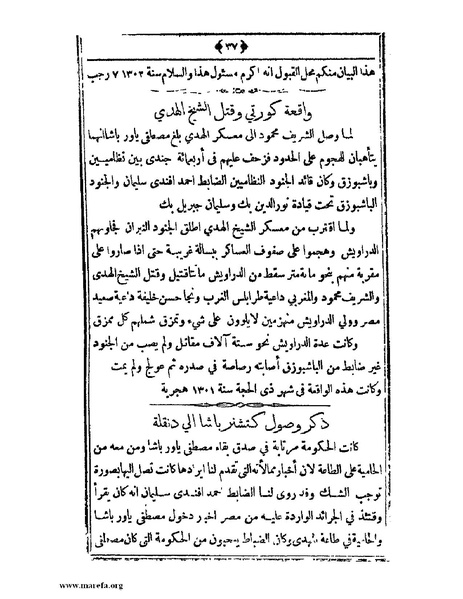 ﴿٣٧﴾
هذا البيان منكم محل القبول انه اكرم مسئول هذا والسلام سنة ١٣٠٢ ٧ رجب
واقعة كورتي وقتل الشيخ الهدي
لما وصل الشريف محمود الى معسكر الهدي بلغ مصطفى ياور باشا انهما
يتأهبان للهجوم على الحدود فزحف عليهم في أربعمائة جندى بين نظاميين
وباشبوزق وكان قائد الجنود النظاميين الضابط احمد افندى سليمان والجنود
الباشبوزق تحت قيادة نور الدين بك وسليمان جبريل بك
ولما اقترب من معسكر الشيخ الهدي اطلق الجنود النيران فجاوبهم
الدراويش وهجموا على صفوف العساكر ببسالة غريبة حتى اذا صاروا على
مقربة منهم بنحو مائة متر سقط من الدراويش مائتا قتيل وقتل الشيخ الهدى
والشريف محمود والمغربي داعية طرابلس الغرب ونجا حسن خليفة داعية صعيد
مصر وولي الدراويش منهزمين لا يلوون على شيء وتمزق شملهم كل ممزق
وكانت عدة الدراويش نحو ستة آلاف مقاتل ولم يصب من الجنود
غير ضابط من الباشبوزق أصابته رصاصة في صدره ثم عولج ولم يمت
وكانت هذه الواقعة في شهر ذى الحجة سنة ١٣٠١ هجرية
ذكر وصول كتشنر باشا الي دنقلة
كانت الحكومة مرتابة في صدق بقاء مصطفى ياور باشا ومن معه من
الحامية على الطاعة لان أخبار ممالأته التى تقدم لنا ايرادها كانت تصل اليها بصورة
توجب الشك وقد روى لنا الضابط احمد افندى سليمان انه كان يقرأ
وقتئذ في الجرائد الواردة عليه من مصر اخبار دخول مصطفى ياور باشا
والحامية في طاعة المهدى وكان الضباط يعجبون من الحكومة التى كان مصطفى
www.marefa.org